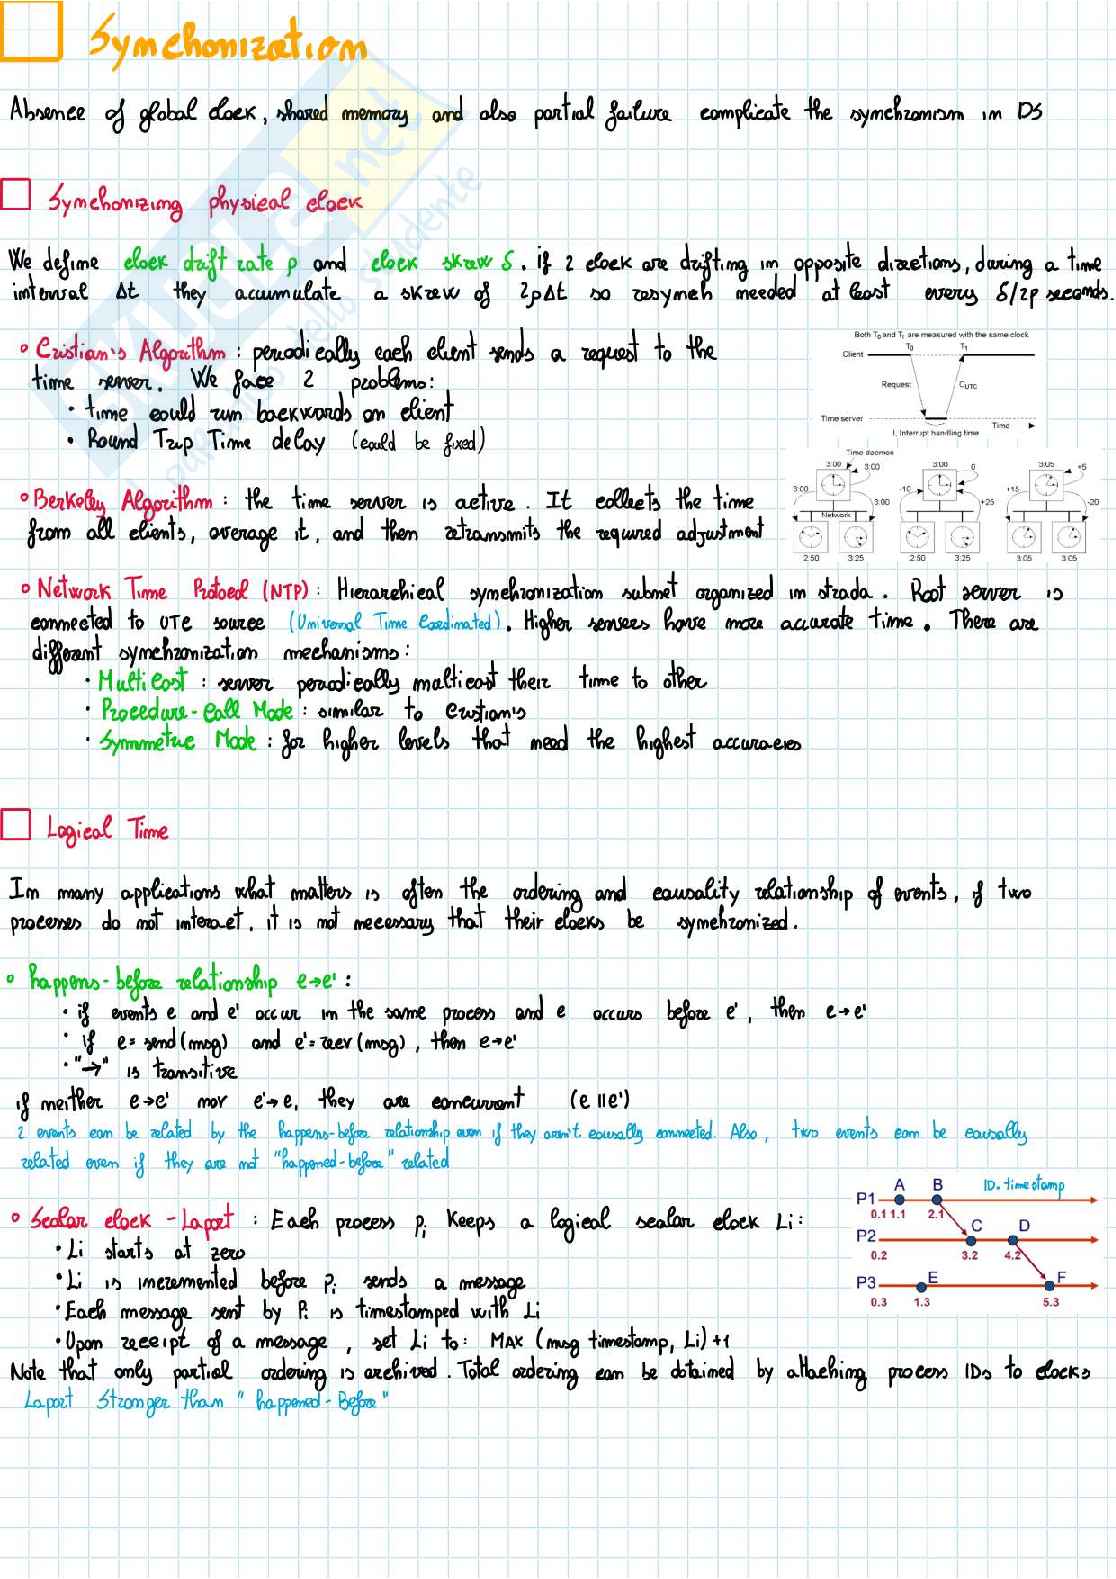 Synchonization
Absence of global clock, shared memory and also partial failure complicate the synchronism in DS
Synchonizing physical clock
We define clock drift rate ρ and clock skew δ. if 2 clock are drifting in opposite directions, during a time
interval Δt they accumulate a skew of 2ρΔt so resynch needed at least every δ/2ρ seconds.
° Cristian's Algorithm : periodically each client sends a request to the
time server. We face 2 problems:
• time could run backwards on client
• Round Trip Time delay (could be fixed)
Both T0 and T1 are measured with the same clock
T0 T1
Client
Request
CUTC
Time server
Time
I, Interrupt handling time
° Berkeley Algorithm : the time server is active. It collects the time
from all clients, average it, and then retransmits the required adjustment
Time daemon
3:00 3:00 3:00 0 3:05 +5
3:00 3:00 -10 +25 +15 -20
Network
2:50 3:25 2:50 3:25 3:05 3:05
° Network Time Protocol (NTP) : Hierarchical synchronization subnet organized in strada. Root server is
connected to UTC source (Universal Time Coordinated). Higher servers have more accurate time. There are
different synchronization mechanisms:
• Multicast : server periodically multicast their time to other
• Procedure-Call Mode : similar to Cristian's
• Symmetric Mode : for higher levels that need the highest accuracies
Logical Time
In many applications what matters is often the ordering and causality relationship of events, if two
processes do not interact, it is not necessary that their clocks be synchronized.
° happens-before relationship e→e' :
• if events e and e' occur in the same process and e occurs before e', then e→e'
• if e=send(msg) and e'=recv(msg), then e→e'
• "→" is transitive
if neither e→e' nor e'→e, they are concurrent (e||e')
2 events can be related by the happens-before relationship even if they aren't causally connected. Also, two events can be causally
related even if they are not "happened-before" related
° Scalar clock - Laport : Each process pi Keeps a logical scalar clock Li:
• Li starts at zero
• Li is incremented before pi sends a message
• Each message sent by Pi is timestamped with Li
• Upon receipt of a message, set Li to: MAX (msg timestamp, Li)+1
A B ID.timestamp
P1
0.1 1.1 2.1
C D
P2
0.2 3.2 4.2
E F
P3
0.3 1.3 5.3
Note that only partial ordering is archived. Total ordering can be obtained by attaching process IDs to clocks
Laport Stronger than "happened-Before"